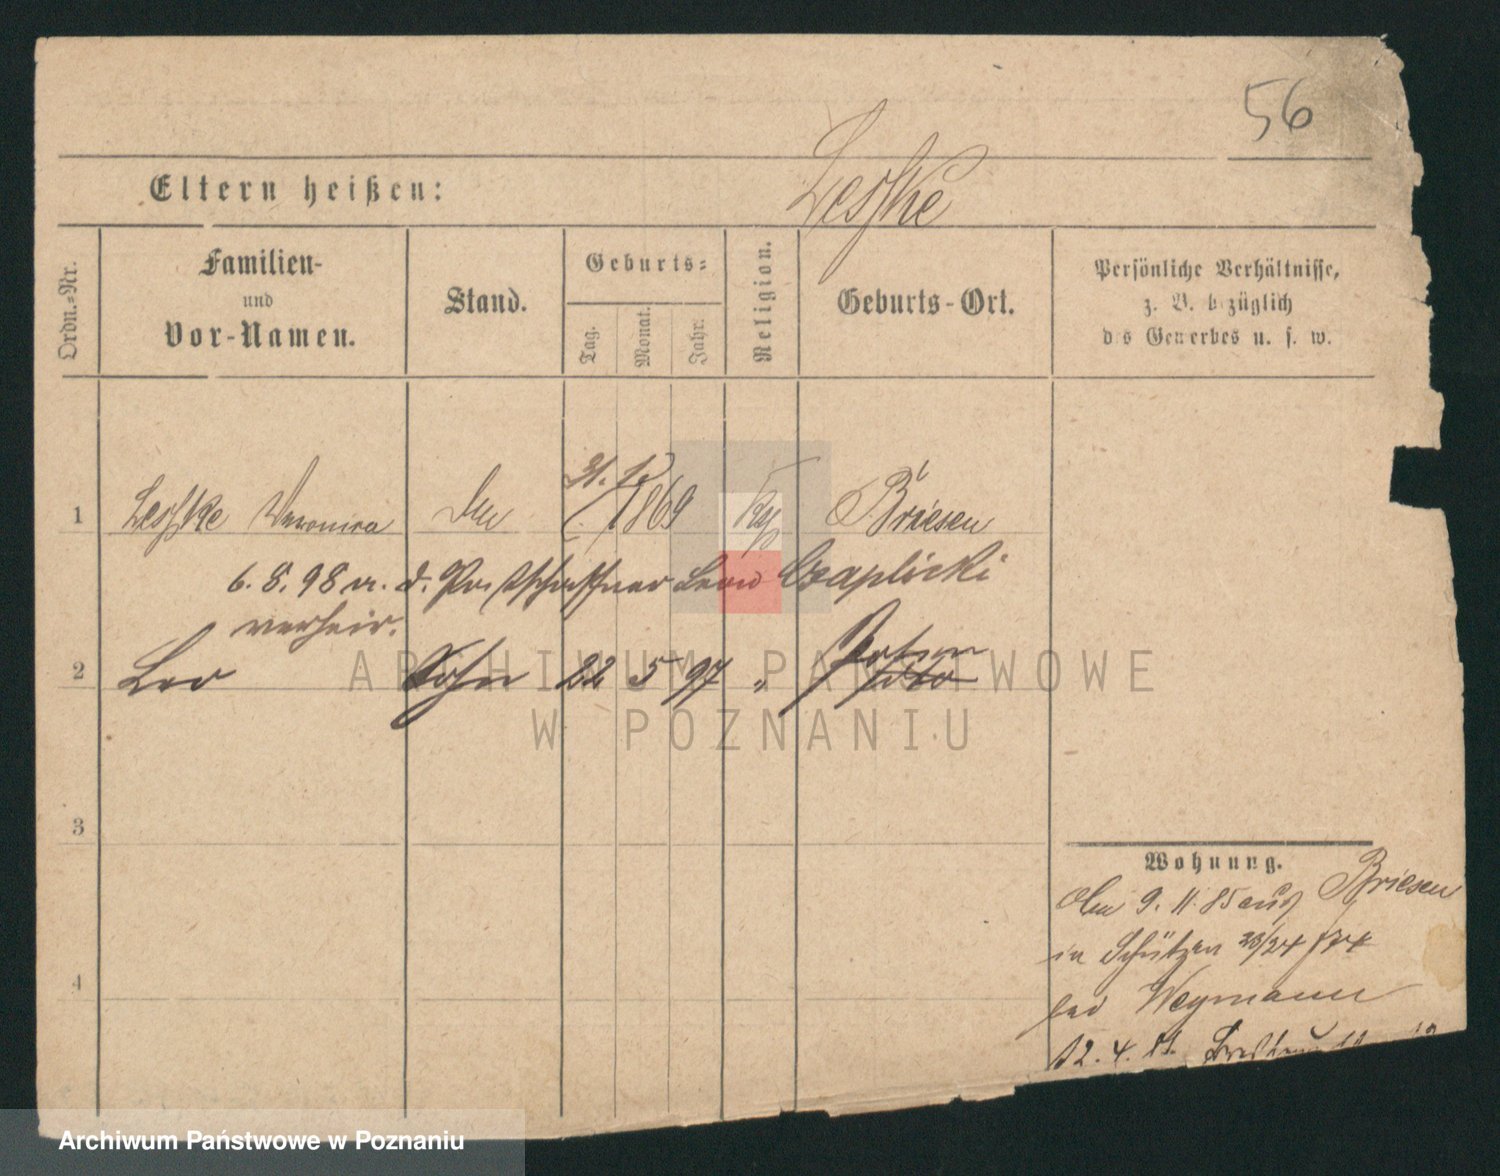 56
Leske
Eltern heißen:
Ordn.-Nr.
Familien-
und
Vor-Namen.
Stand.
Geburts-
Tag.
Monat.
Jahr.
Religion.
Geburts-Ort.
Persönliche Verhältnisse,
z. B. bezüglich
des Gewerbes u. s. w.
1 Leske Veronica 1869 Briesen
6. 8. 98 m. d. Postschaffner Leon Czaplicki
verheir.
2 Leo Sohn 22 5 97 " Posen
3
4
Wohnung.
9. 11. 85 aus Briesen
in Schützen 23/24
bei Weymann
12. 4.
ARCHIWUM PAŃSTWOWE
W POZNANIU
Archiwum Państwowe w Poznaniu